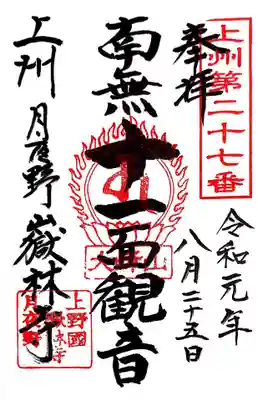 上州第二十七番
奉拝
令和元年
八月二十五日
南無十一面観音
上州
月夜野
嶽林寺
上野國
嶽林寺
月夜野